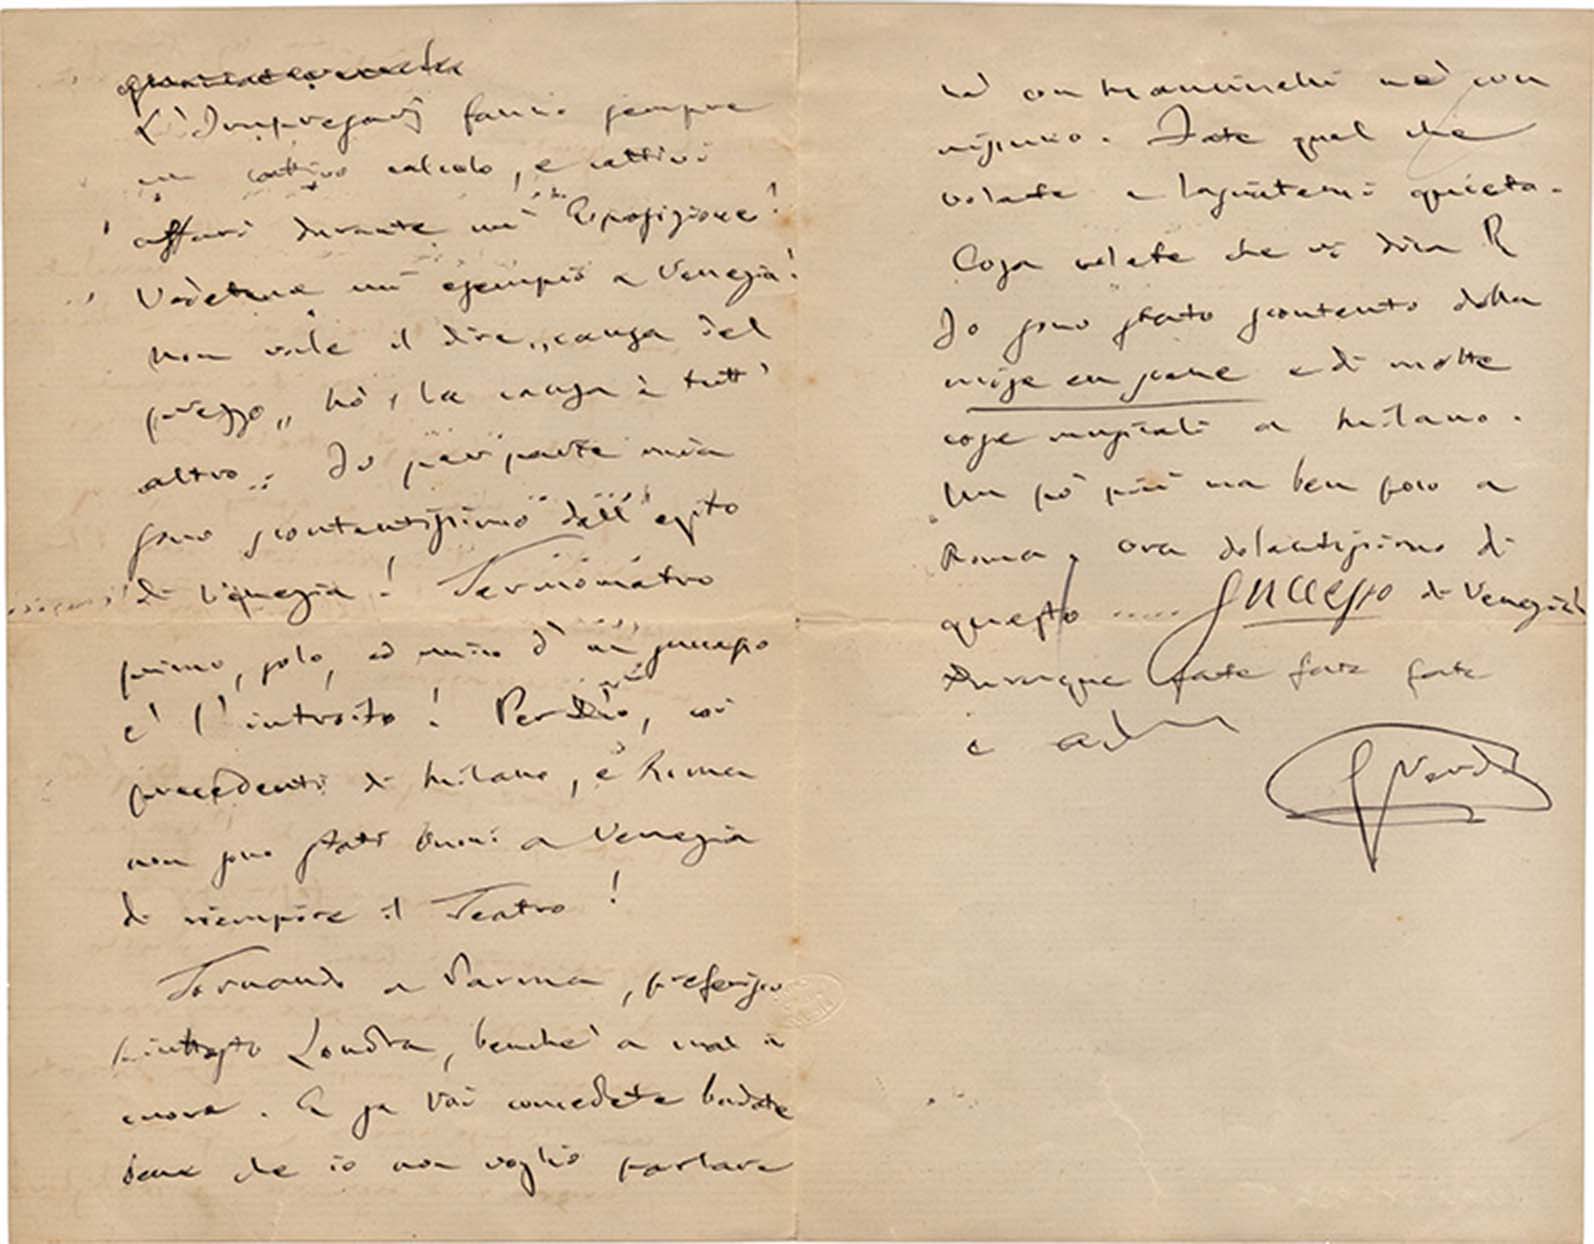 L'Impresarj fanno sempre
un cattivo calcolo, e cattivi
affari durante un' Esposizione!
Vedetene un esempio a Venezia!
Non vale il dire „causa del
prezzo„ nò, la causa è tutt'
altro.. Io per parte mia
sono scontentissimo dell'esito
di Venezia! Termometro
primo, solo, ed unico d'un successo
e' l'introito! Perdio, coi
precedenti di Milano, e Roma
non sono stati buoni a Venezia
di riempire il Teatro!
Tornando a Parma, preferisco
piuttosto Londra, benche' a mal in
cuore. E se Voi concedete badate
bene che io non voglio parlare
nè con Mancinelli nè con
nissuno. Fate quel che
volete e lasciatemi quieto.
Cosa volete che vi dica
Io sono stato scontento della
mise en scene e di molte
cose musicali a Milano.
Un pò più ma ben poco a
Roma, ora dolentissimo di
questo ..... successo di Venezia!
Dunque fate fate fate
e ad
G Verdi